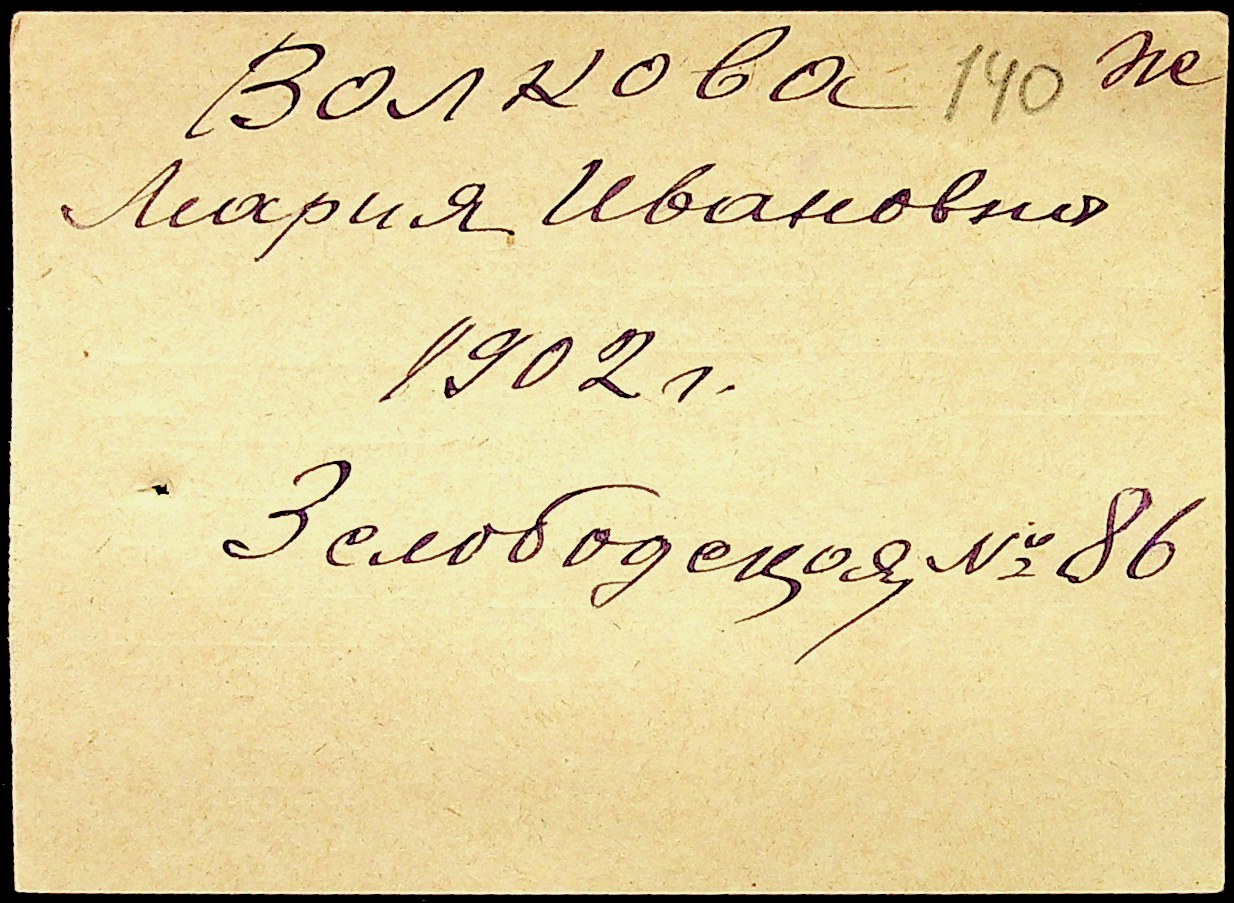 Волкова 140 ж
Мария Ивановна
1902 г.
3 слободская № 86